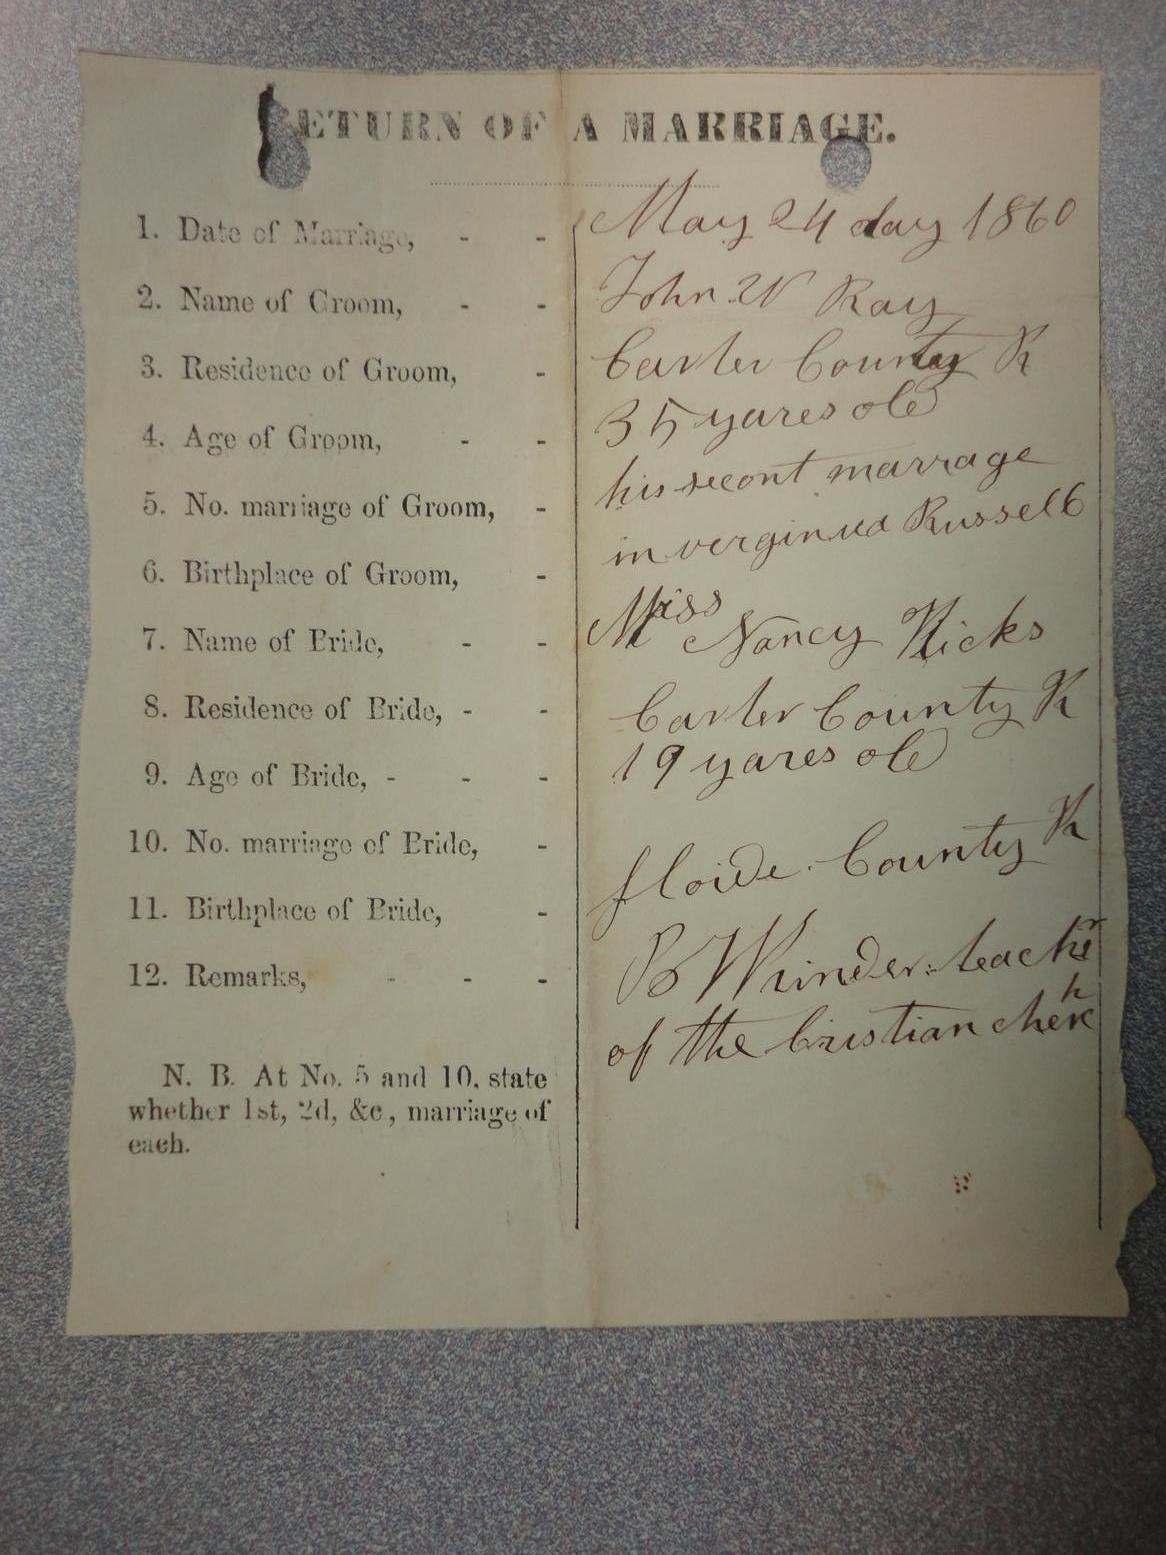 RETURN OF A MARRIAGE.
1. Date of Marriage, - - May 24 day 1860
2. Name of Groom, - - John W Ray
3. Residence of Groom, - Carter County K
4. Age of Groom, - - 35 yares old
5. No. marriage of Groom, - his secont marrage
6. Birthplace of Groom, - in Russell
7. Name of Bride, - - Miss Nancy Hicks
8. Residence of Bride, - - Carter County K
9. Age of Bride, - - - 19 yares old
10. No. marriage of Bride, -
11. Birthplace of Bride, - floide County K
12. Remarks, - - -
of the Cristian
N. B. At No. 5 and 10, state
whether 1st, 2d, &c., marriage of
each.